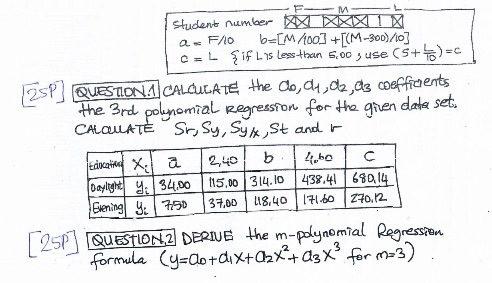 F M L
Student number XX XXX 1 X
a = F/10 b=[M/100]+[(M-300)/10]
c = L {if L is less than 5,00, use (5+L/10)=c
[25P] QUESTION.1 CALCULATE the a0,a1,a2,a3 coefficients
the 3rd polynomial Regression for the given data set.
CALCULATE Sr, Sy, Sy/x, St and r
Education Xi a 2,40 b 4.60 c
Daylight yi 34,00 115,00 314,10 438,41 680,14
Evening yi 7.50 37,00 118,40 171.60 270,12
[25P] QUESTION.2 DERIVE the m-polynomial Regression
formula (y=a0+a1x+a2x²+a3x³ for m=3)